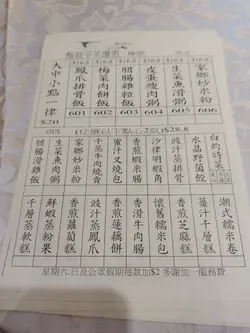 家鄉炒米粉
$16.8
606
生菜魚滑粥
$16.8
605
皮蛋瘦肉粥
$16.8
604
臘腸雞粒飯
$16.8
603
梅菜肉餅飯
$16.8
602
鳳爪排骨飯
$16.8
601
大中小點一律
$20
(任選以下點心2款)$28.8
水晶野菌餃
豉汁蒸排骨
沙律明蝦角
蜜汁叉燒包
干蒸牛肉燒賣
家鄉炒米粉
生菜魚肉粥
臘腸滑雞飯
薑汁千層糕
香煎芝麻糕
懷舊糯米包
香滑牛肉腸
香煎蓮藕餅
豉汁蒸鳳爪
香煎蘿蔔糕
鮮蝦蒸粉果
千層蒸軟糕
星期六,日及公眾假期每款加$2 多謝加一服務費